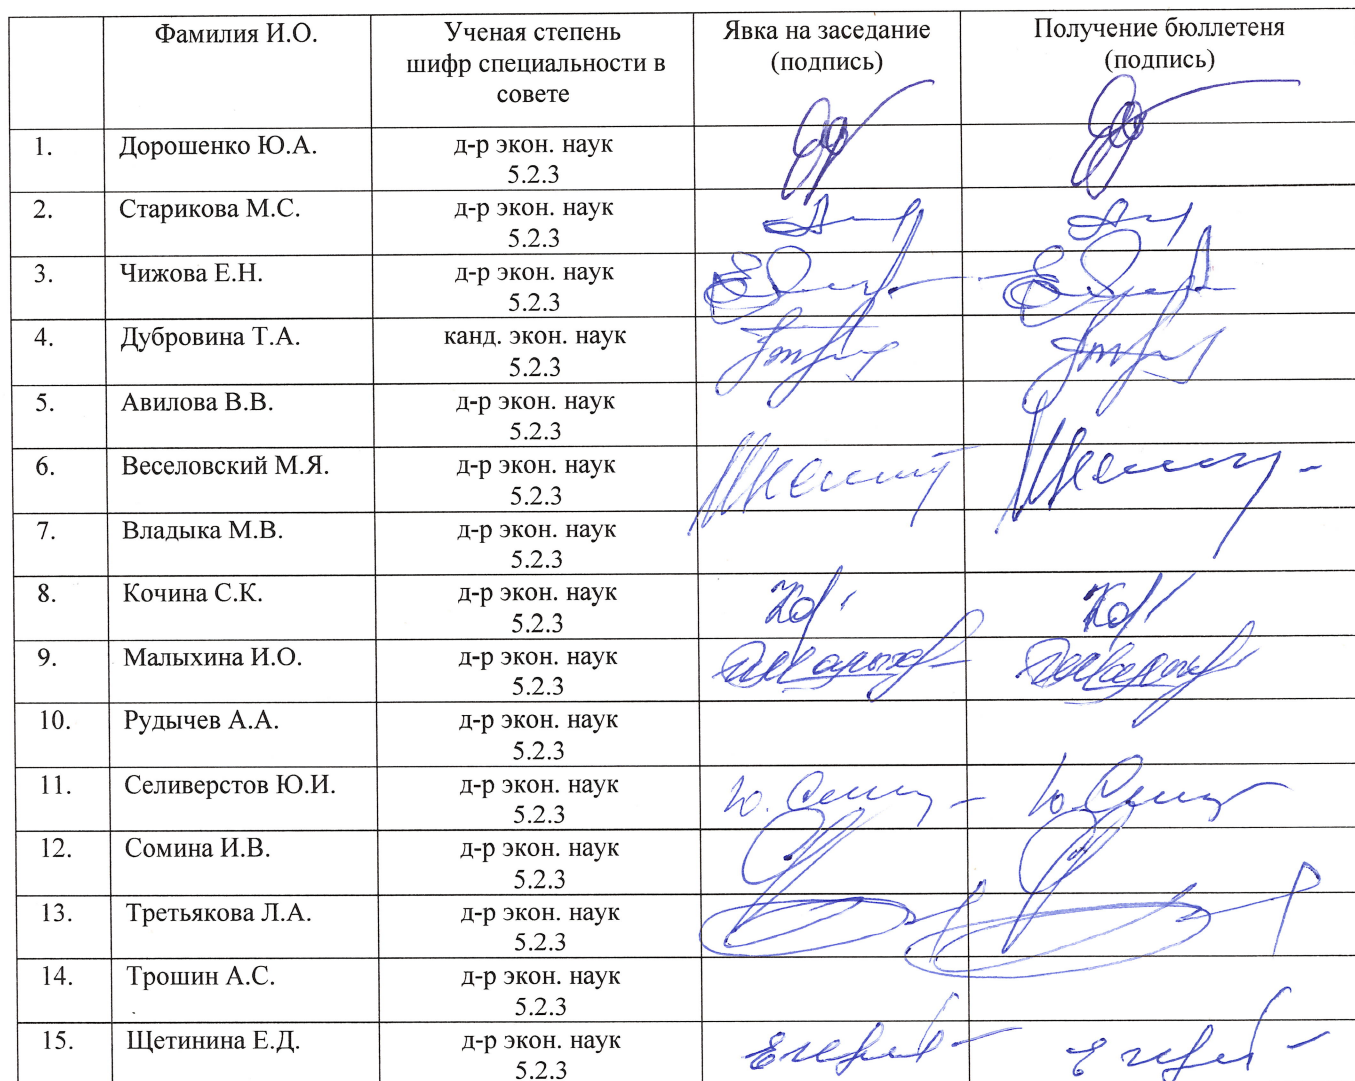 Фамилия И.О.
Ученая степень
шифр специальности в
совете
Явка на заседание
(подпись)
Получение бюллетеня
(подпись)
1. Дорошенко Ю.А. д-р экон. наук
5.2.3
2. Старикова М.С. д-р экон. наук
5.2.3
3. Чижова Е.Н. д-р экон. наук
5.2.3
4. Дубровина Т.А. канд. экон. наук
5.2.3
5. Авилова В.В. д-р экон. наук
5.2.3
6. Веселовский М.Я. д-р экон. наук
5.2.3
7. Владыка М.В. д-р экон. наук
5.2.3
8. Кочина С.К. д-р экон. наук
5.2.3
9. Малыхина И.О. д-р экон. наук
5.2.3
10. Рудычев А.А. д-р экон. наук
5.2.3
11. Селиверстов Ю.И. д-р экон. наук
5.2.3
12. Сомина И.В. д-р экон. наук
5.2.3
13. Третьякова Л.А. д-р экон. наук
5.2.3
14. Трошин А.С. д-р экон. наук
5.2.3
15. Щетинина Е.Д. д-р экон. наук
5.2.3